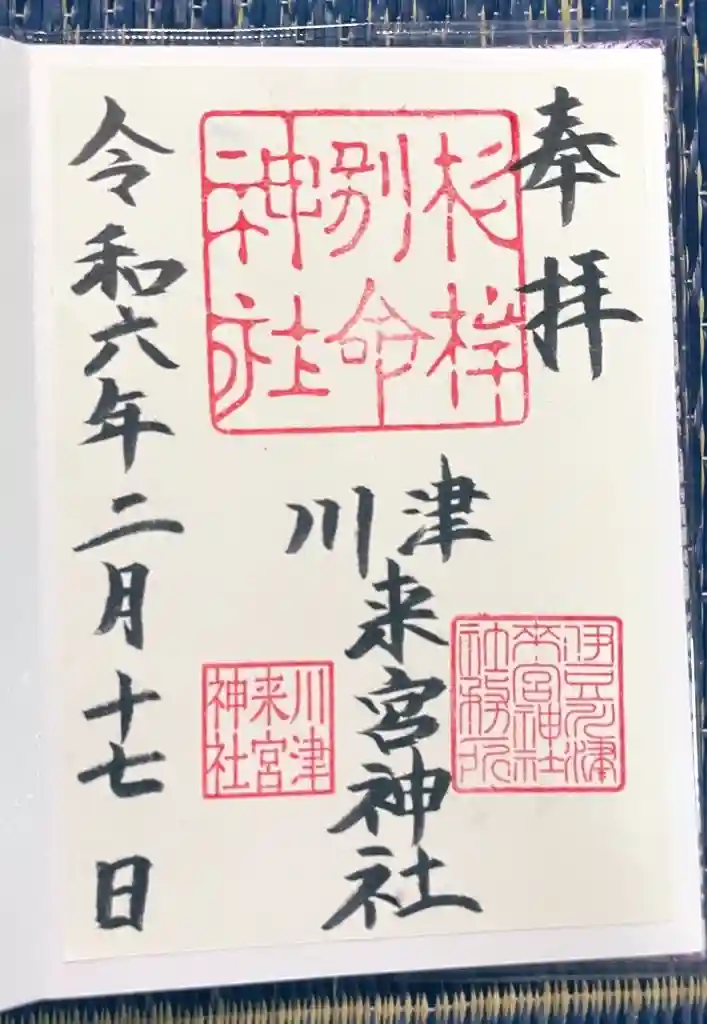 奉拝
杉桙
別命
神社
川津
来宮神社
伊豆川津
來宮神社
社務所
川津
来宮
神社
令和六年二月十七日